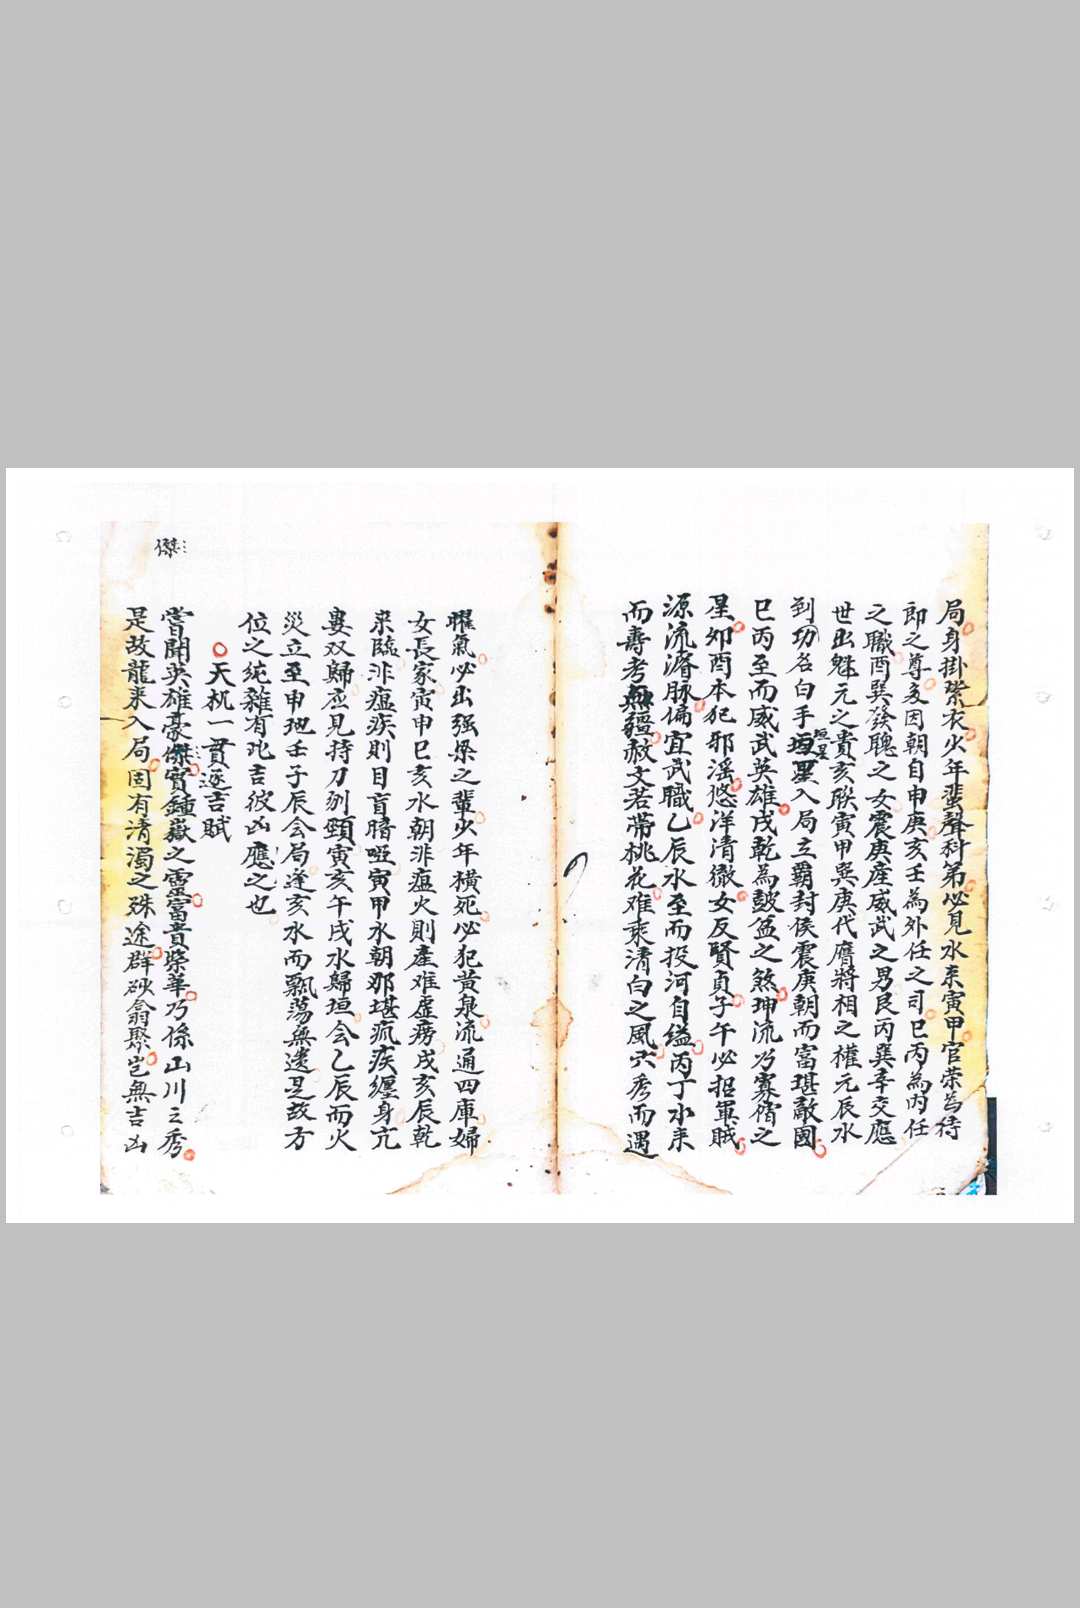 局身掛紫衣火年蜚聲科第必見水来寅甲官荣為待
郎之尊亥因朝自申庚亥壬為外任之司巳丙為内任
之職酉巽發聰之女震庚産威武之男艮丙巽辛交應
世出魁元之貴亥聨寅甲巽庚代膺將相之權元辰水
到功名白手垣星入局立覇封侯震庚朝而富堪敵國
垣星
巳丙至而威武英雄戌乾為鼓盆之煞坤流乃寡宿之
星夘酉本犯邪滛悠洋清徹女反賢貞子午必招軍賊
源流濳脉偏宜武職乙辰水至而投河自缢丙丁水来
而壽考無疆赦文若帶桃花难乘清白之風六秀而遇
曜氣必出强梁之輩火年横死必犯黃泉流通四庫婦
女長家寅申巳亥水朝非瘟火則產难虛癆戌亥辰乾
来臨非瘟疾則目盲瘖哑寅甲水朝那堪疯疾纏身亢
婁双歸应見持刀刎頸寅亥午戌水歸垣会乙辰而火
災立至申地壬子辰会局逢亥水而飄荡無遗是故方
位之純雜有此吉彼凶應之也
天机一貫逐吉賦
嘗聞英雄豪傑實鍾嶽之靈富貴榮華乃係山川之秀
傑
是故龍来入局固有清濁之殊途群砂翕聚岂無吉凶